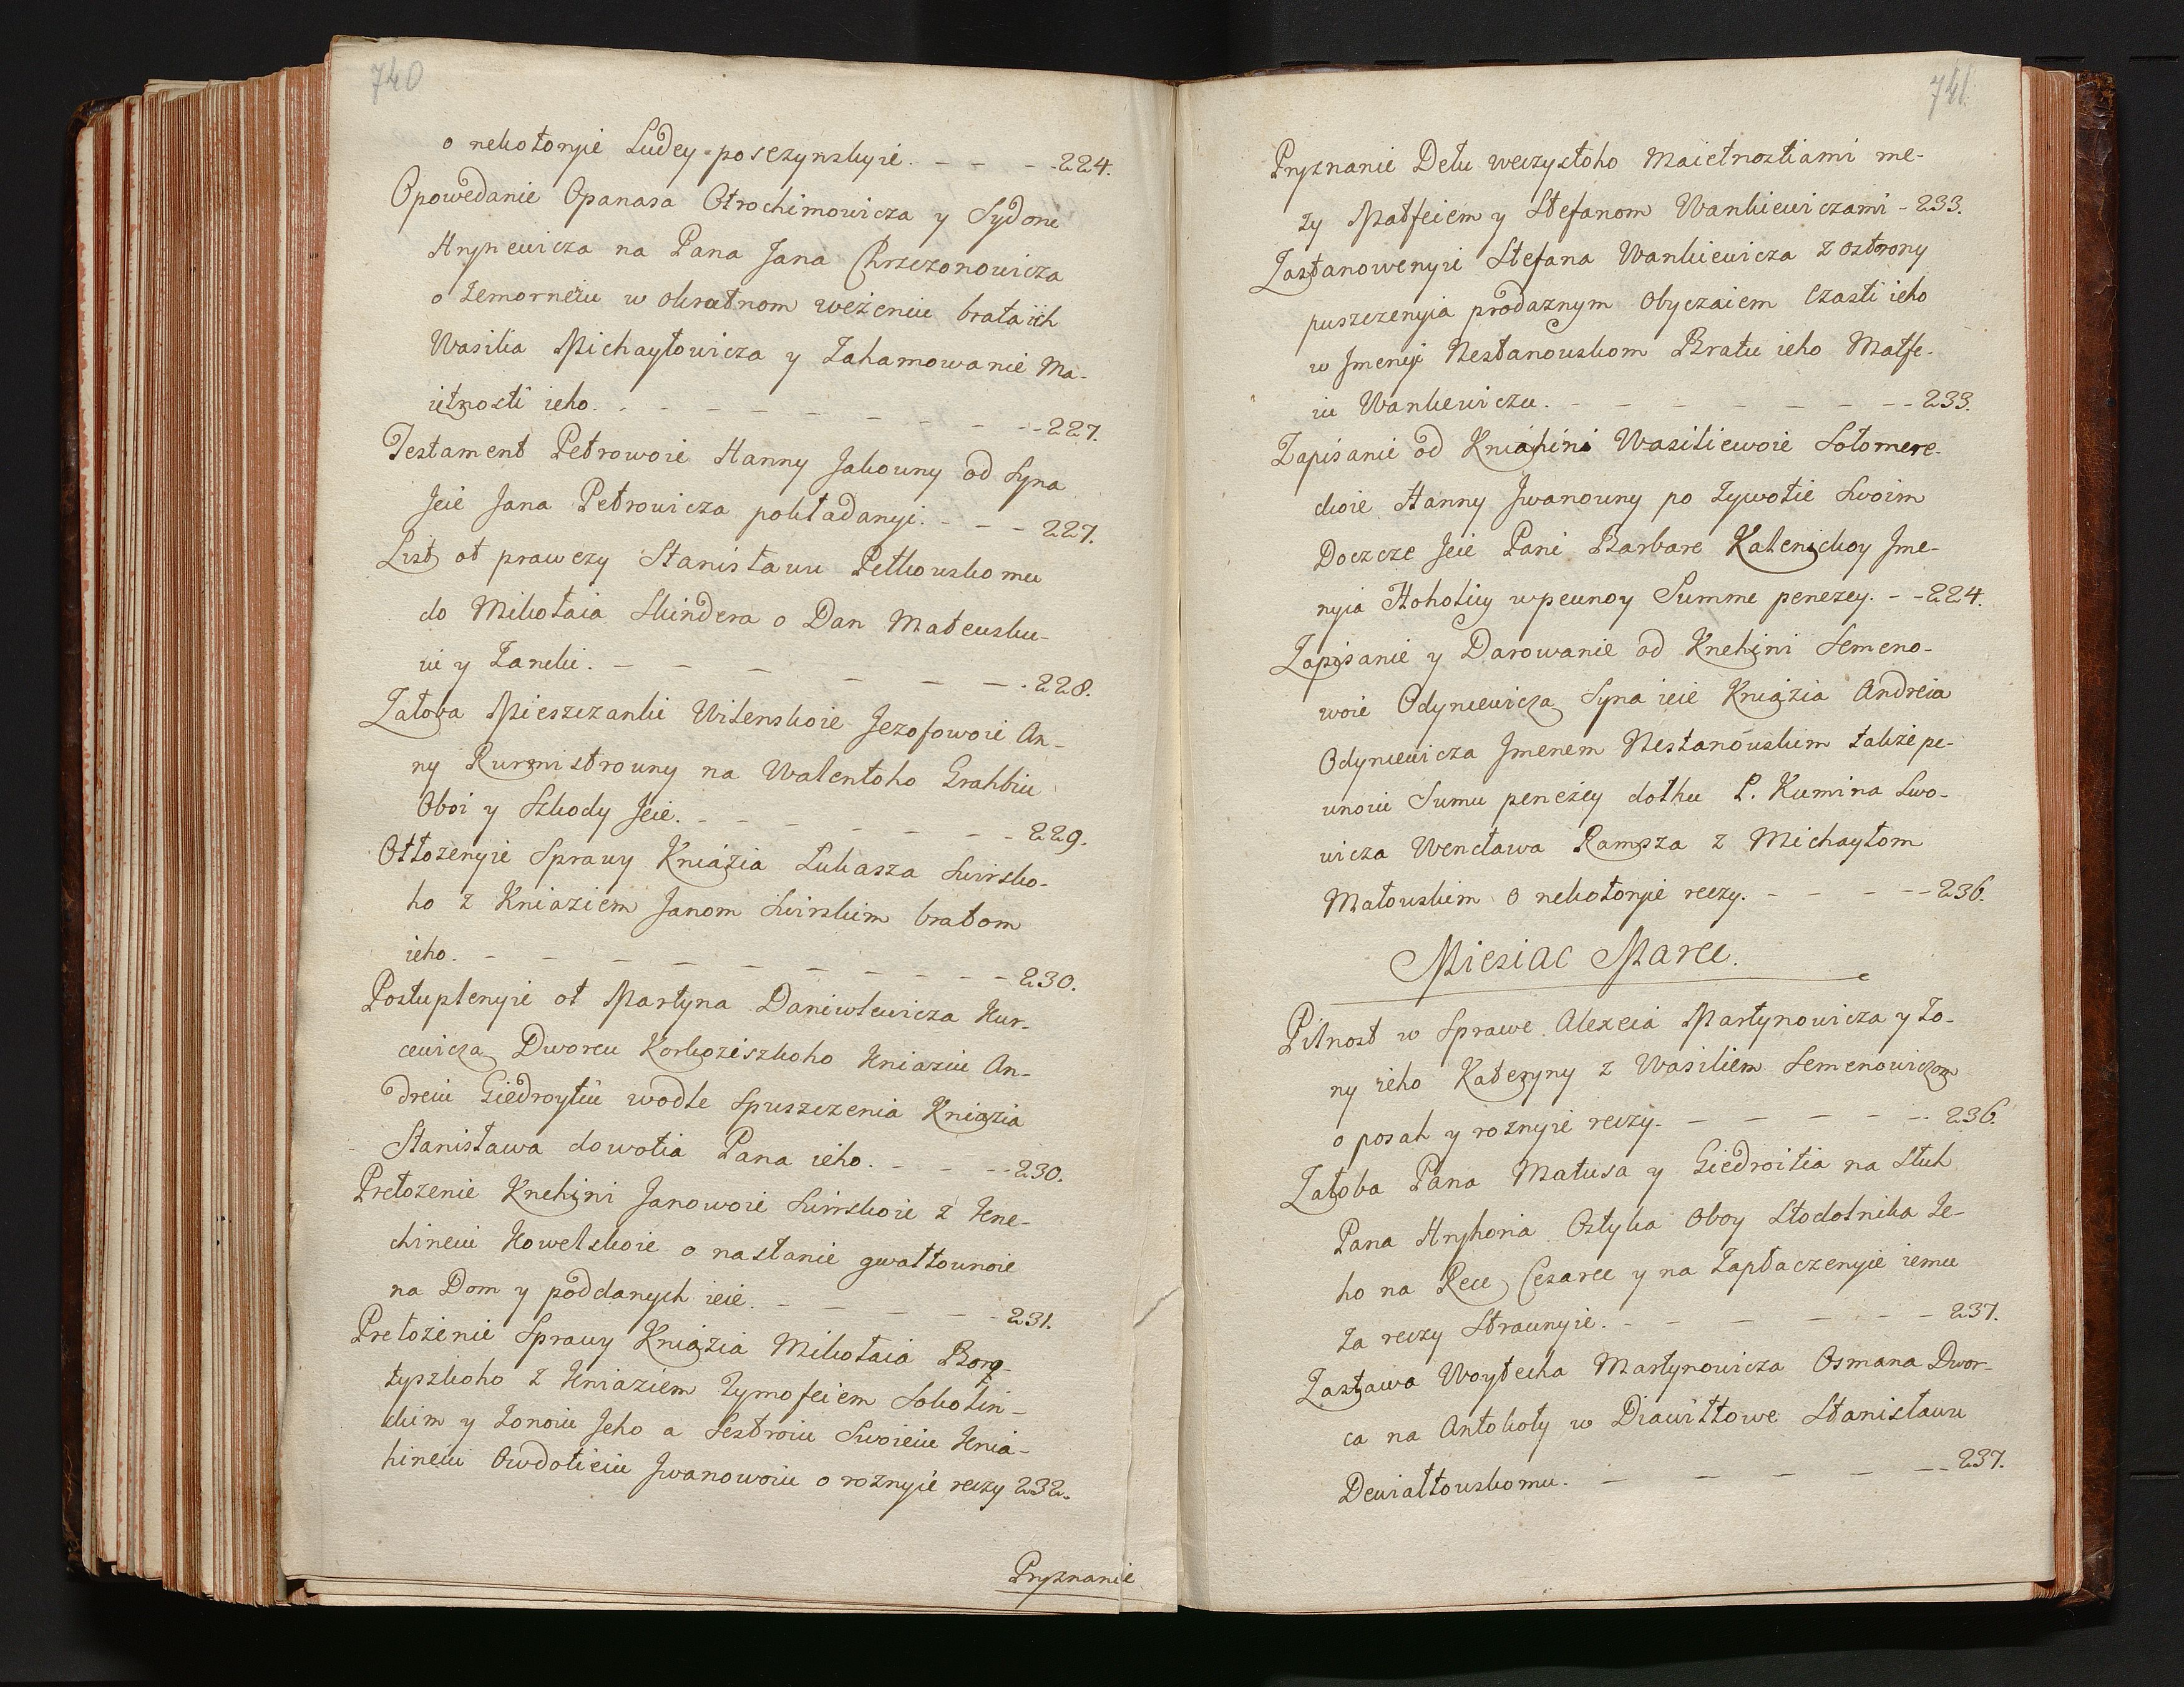 740
o nekotoryie Ludey posczynskyie. - - - 224.
Opowedanie Opanasa Otrochimowicza y Sydora
Hrynewicza na Pana Jana Chrzczonowicza
o Zemorneiu w okrutnom weżeniu brata ich
Wasilia Michayłowicza y Zahamowanie Ma-
ietnosti ieho. - - - - - - - - 227.
Testament Petrowoie Hanny Jakowny od Syna
Jeie Jana Petrowicza pokładanyi. - - - 227.
List ot prawczy Stanisławu Petkowskomu
do Mikołaia Skindera o Dan Mateusku-
iu y Zamki. - - - - - - 228.
Załoba Mieszczanki Wilenskoie Jezofowoie An-
ny Burmistrowny na Walentoho Grahbiu
Oboi y Szkody Jeie. - - - - - - 229.
Otłożenyie Sprawy Kniázia Lukasza Swirsko-
ho z Kniaziem Janom Swirskim bratom
ieho. - - - - - - - - - - 230.
Postuplenyie ot Martyna Daniwlewicza Kur-
cewicza Dworcu Korkoziszkoho Kniaziu An-
dreiu Giedroytiu wodle Spuszczenia Kniazia
Stanisława do wolia Pana ieho. - - - 230.
Prełożenie Knehini Janowoie Swirskoie z Kne-
chineiu Kowelskoie o nasłanie gwałtownoie
na Dom y poddanych ieie. - - - - - 231.
Prełożenie Sprawy Kniazia Mikołaia Borq-
tyszkoho z Kniaziem Tymofeiem Sokolin-
skim y Żonoiu Jeho a Sestroiu Swoieiu Knia-
hineiu Owdotieiu Jwanowoiu o roznyie reczy 232.
Pryznanie
741
Pryznanie Delu weczystoho Maietnostiami me-
ży Matfeiem y Stefanom Wankiewiczami - 233.
Zastanowenyie Stefana Wankiewicza z ostrony
puszczenyia prodaznym Obyczaiem Czasti ieho
w Jmenyi Nestanowskom Bratu ieho Matfe-
iu Wankewiczu. - - - - - - - 233.
Zapisanie od Kniahini Wasiliewoie Sołomere-
ckoie Hanny Jwanowny po Żywotie Swoim
Doczcze Jeie Pani Barbare Kalenickoy Jme-
nyia Hoholicy w pewnoy Summe penezey. - - 224.
Zapisanie y Darowanie od Knehini Semeno-
woie Odyncewicza Syna ieie Kniázia Andreia
Odyncewicza Jmenem Nestanowskim takze pe-
wnoiu Sumu penezey dolhu P. Kumina Lwo-
wicza Wencława Ramsza z Michayłom
Małowskim o nekotoryie reczy. - - - - - 236.
Miesiac Marec.
Pilnost w Sprawe Alexeia Martynowicza y Żo-
ny ieho Kateryny z Wasiliem Semenowiczom
o posah y roznyie reczy. - - - - - 236.
Załoba Pana Matusa y Giedroitia na Sluh
Pana Hryhoria Ostyka Oboy Stodolnika Je-
ho na Rece Cesarce y na Zapłaczenyie iemu
za reczy Strawnyie. - - - - - - 237.
Zastawa Woytecha Martynowicza Osmana Dwor-
ca na Antokoły w Diawiłtowe Stanisławu
Dewiałtowskomu. - - - - - - 237.